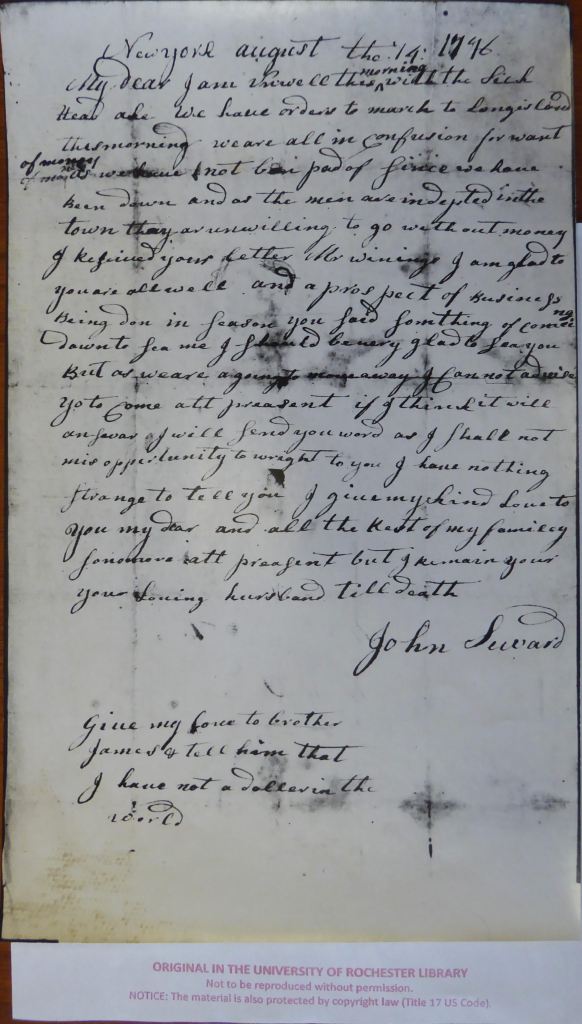 Newyork august the 14: 1776
My dear I am Unwell this morning with the Sick
Head ake We have orders to march to Longisland
this morning we are all in Confusion for want
of money as we have not bin pad of Since we have
Been down and as the men are indepted in the
town thay ar unwilling to go with out money
I Reseived your Letter Mr winings I am glad to
you are all well and a prospect of Business
Being don in Season you said Somthing of Coming
down to Sea me I Should be very glad to Sea you
But as we are agoing to move away I Can not advise
yo to Come att preasent if I think it will
answar I will Send you word as I Shall not
mis oppertunity to wright to you I have nothing
Strange to tell you I give my kind Love to
you my dear and all the Rest of my familey
So no more att preasent but I Remain your
your Loving hursband till death
John Seward
Give my Love to brother
James & tell him that
I have not a doller in the
World
ORIGINAL IN THE UNIVERSITY OF ROCHESTER LIBRARY
Not to be reproduced without permission.
NOTICE: The material is also protected by copyright law (Title 17 US Code).